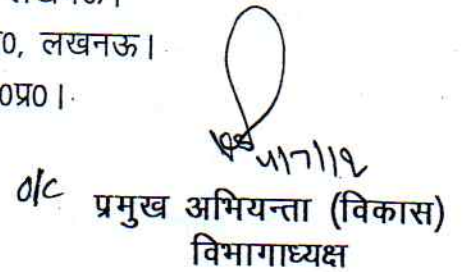 लखनऊ।
0, लखनऊ।
0प्र0।
4/7/12
o/c प्रमुख अभियन्ता (विकास)
विभागाध्यक्ष